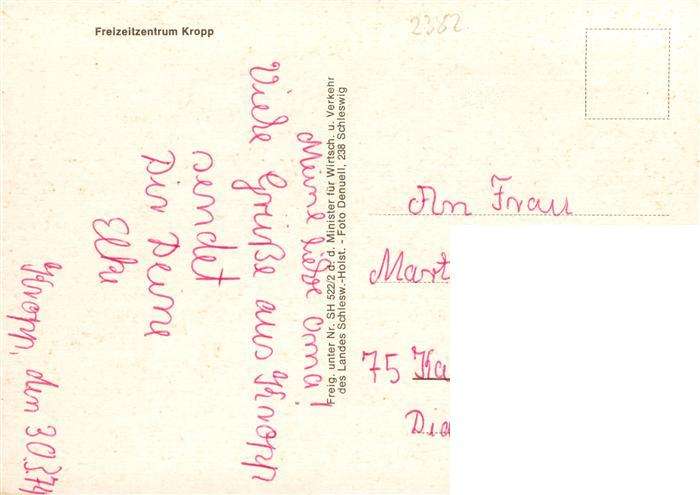 Freizeitzentrum Kropp
2382
Meine liebe Oma!
Viele Grüße aus Kropp
sendet
Dir Deine
Elke
Kropp, den
Freig. unter Nr. SH 522/2 d. d. Minister für Wirtsch. u. Verkehr
des Landes Schlesw.-Holst. - Foto Denuell, 238 Schleswig
An Frau
Mart
75 Ka